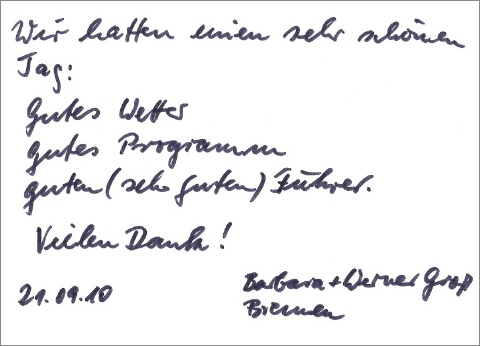 Wir hatten einen sehr schönen
Tag:
Gutes Wetter
gutes Programm
guten (sehr guten) Führer.
Vielen Dank!
21.09.10
Barbara + Werner Groß
Bremen